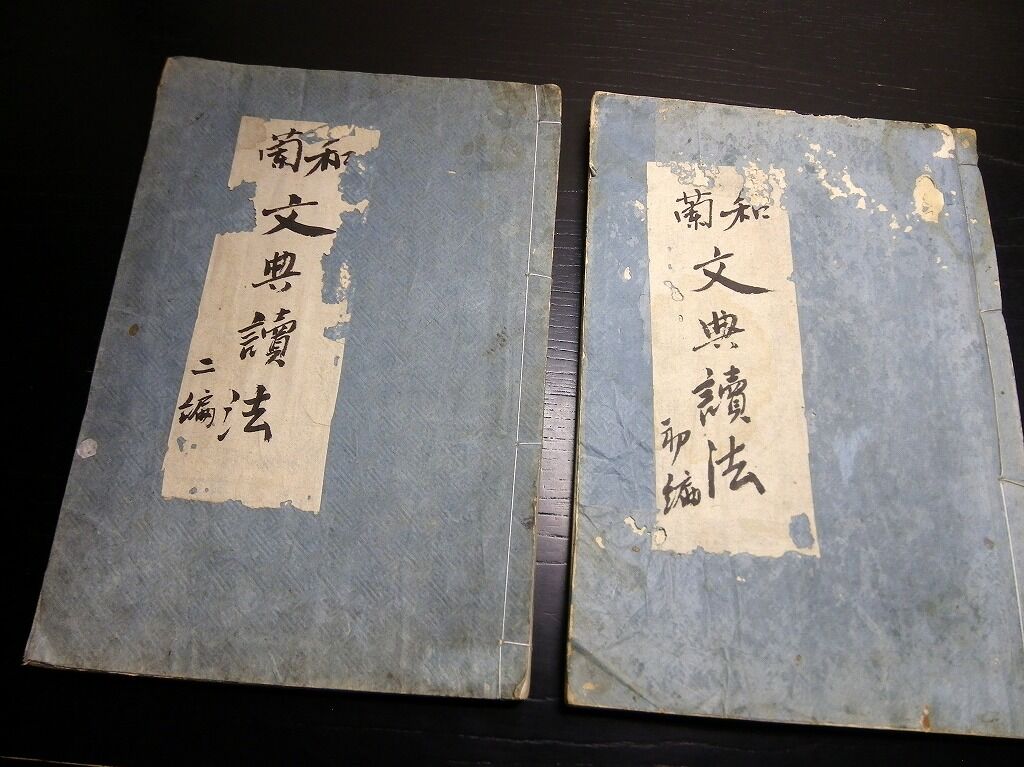 和蘭
文典讀法
初編
和蘭
文典讀法
二編